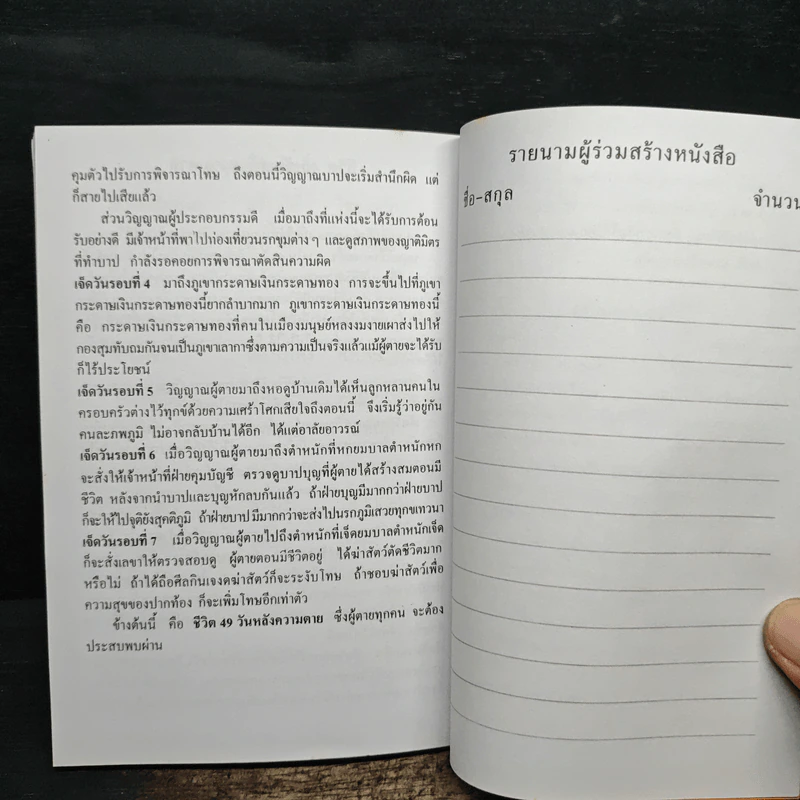 คุมตัวไปรับการพิจารณาโทษ ถึงตอนนี้วิญญาณบาปจะเริ่มสำนึกผิด แต่
ก็สายไปเสียแล้ว
ส่วนวิญญาณผู้ประกอบกรรมดี เมื่อมาถึงที่แห่งนี้จะได้รับการต้อน
รับอย่างดี มีเจ้าหน้าที่พาไปท่องเที่ยวนรกขุมต่าง ๆ และดูสภาพของญาติมิตร
ที่ทำบาป กำลังรอคอยการพิจารณาตัดสินความผิด
เจ็ดวันรอบที่ 4 มาถึงภูเขากระดาษเงินกระดาษทอง การจะขึ้นไปที่ภูเขา
กระดาษเงินกระดาษทองนี้ยากลำบากมาก ภูเขากระดาษเงินกระดาษทองนี้
คือ กระดาษเงินกระดาษทองที่คนในเมืองมนุษย์หลงงมงายเผาส่งไปให้
กองสุมทับถมกันจนเป็นภูเขาเลากาซึ่งตามความเป็นจริงแล้วแม้ผู้ตายจะได้รับ
ก็ไร้ประโยชน์
เจ็ดวันรอบที่ 5 วิญญาณผู้ตายมาถึงหอดูบ้านเดิมได้เห็นลูกหลานคนใน
ครอบครัวต่างไว้ทุกข์ด้วยความเศร้าโศกเสียใจถึงตอนนี้ จึงเริ่มรู้ว่าอยู่กัน
คนละภพภูมิ ไม่อาจกลับบ้านได้อีก ได้แต่อาลัยอาวรณ์
เจ็ดวันรอบที่ 6 เมื่อวิญญาณผู้ตายมาถึงตำหนักที่หกยมบาลตำหนักหก
จะสั่งให้เจ้าหน้าที่ฝ่ายคุมบัญชี ตรวจดูบาปบุญที่ผู้ตายได้สร้างสมตอนมี
ชีวิต หลังจากนำบาปและบุญหักลบกันแล้ว ถ้าฝ่ายบุญมีมากกว่าฝ่ายบาป
ก็จะให้ไปจุติยังสุคติภูมิ ถ้าฝ่ายบาปมีมากกว่าจะส่งไปนรกภูมิเสวยทุกขเทวนา
เจ็ดวันรอบที่ 7 เมื่อวิญญาณผู้ตายไปถึงตำหนักที่เจ็ดยมบาลตำหนักเจ็ด
ก็จะสั่งเลขาให้ตรวจสอบดู ผู้ตายตอนมีชีวิตอยู่ ได้ฆ่าสัตว์ตัดชีวิตมาก
หรือไม่ ถ้าได้ถือศีลกินเจงดฆ่าสัตว์ก็จะระงับโทษ ถ้าชอบฆ่าสัตว์เพื่อ
ความสุขของปากท้อง ก็จะเพิ่มโทษอีกเท่าตัว
ข้างต้นนี้ คือ ชีวิต 49 วันหลังความตาย ซึ่งผู้ตายทุกคน จะต้อง
ประสบพบผ่าน
รายนามผู้ร่วมสร้างหนังสือ
ชื่อ-สกุล
จำนวน